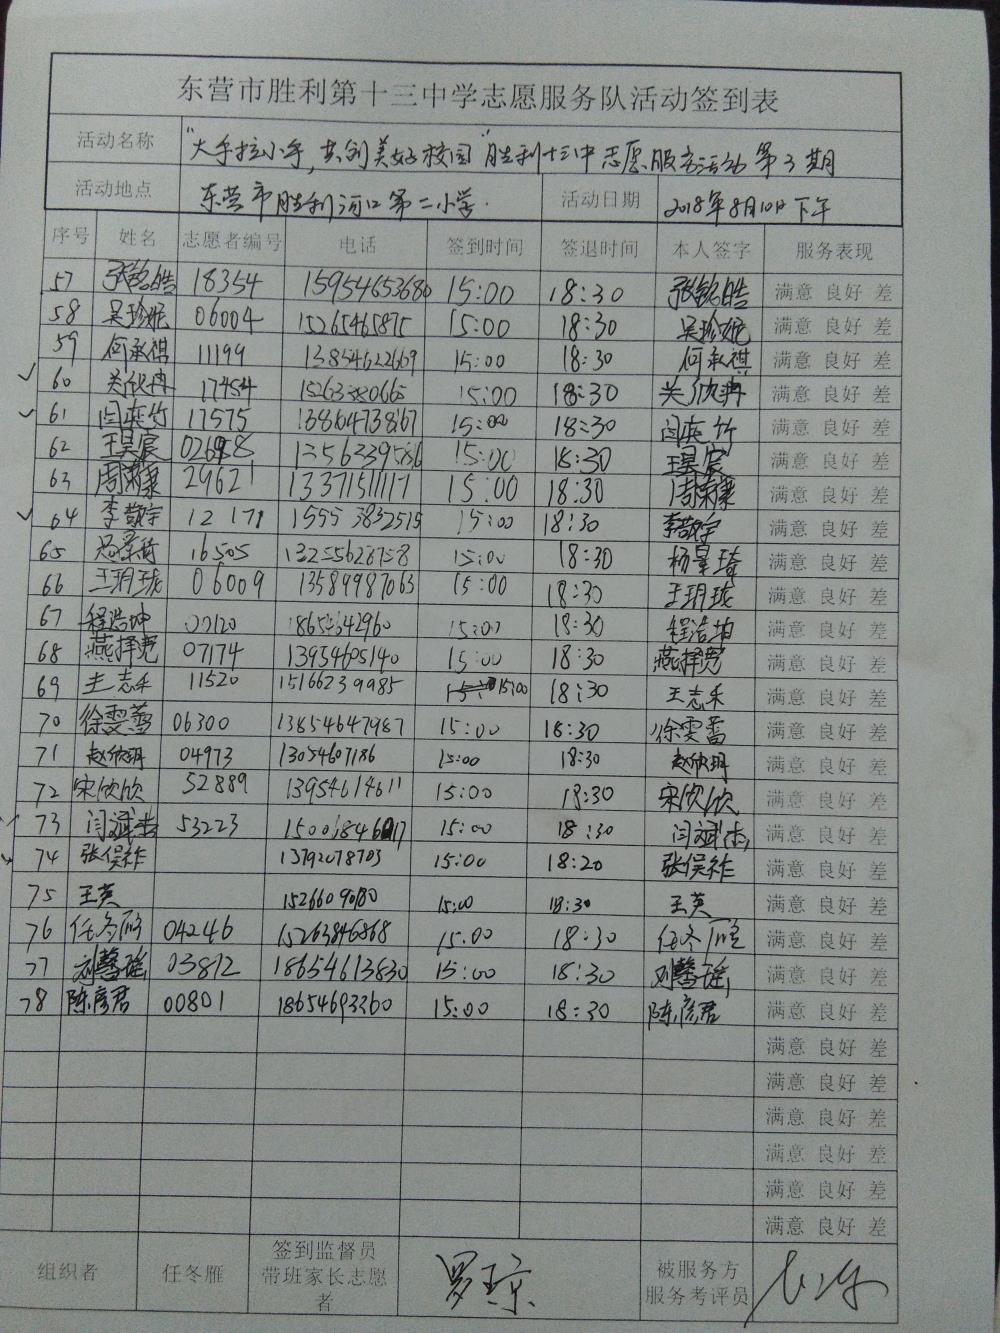 东营市胜利第十三中学志愿服务队活动签到表
活动名称 "大手拉小手,共创美好校园"胜利十三中志愿服务活动第3期
活动地点 东营市胜利河口第二小学. 活动日期 2018年8月10日下午
序号 姓名 志愿者编号 电话 签到时间 签退时间 本人签字 服务表现
57 张铭皓 18354 15954653680 15:00 18:30 张铭皓 满意 良好 差
58 吴珍妮 06004 15265465875 15:00 18:30 吴珍妮 满意 良好 差
59 何承祺 11199 13854622669 15:00 18:30 何承祺 满意 良好 差
60 关欣冉 17454 15:00 18:30 关欣冉 满意 良好 差
61 闫奕竹 17575 13864738167 15:00 18:30 闫奕竹 满意 良好 差
62 王昊宸 15:00 18:30 王昊宸 满意 良好 差
63 29621 13371511117 15:00 18:30 满意 良好 差
64 李敬宇 12171 15553832515 15:00 18:30 李敬宇 满意 良好 差
65 杨景琦 16505 13255626758 15:00 18:30 杨景琦 满意 良好 差
66 王玥珑 06009 13589987063 15:00 18:30 王玥珑 满意 良好 差
67 程浩坤 07120 15:00 18:30 程浩坤 满意 良好 差
68 燕择宽 07174 13954605140 15:00 18:30 燕择宽 满意 良好 差
69 王志禾 11520 15166239985 15:00 18:30 王志禾 满意 良好 差
70 徐雯蕾 06300 13854647987 15:00 18:30 徐雯蕾 满意 良好 差
71 赵欣玥 04973 13054607186 15:00 18:30 赵欣玥 满意 良好 差
72 宋欣欣 52889 13954614611 15:00 18:30 宋欣欣 满意 良好 差
73 闫斌杰 53223 15:00 18:30 闫斌杰 满意 良好 差
74 张俣祚 13792078703 15:00 18:20 张俣祚 满意 良好 差
75 王英 15:00 18:30 王英 满意 良好 差
76 04246 15263846868 15:00 18:30 满意 良好 差
77 刘馨瑶 03812 18654613830 15:00 18:30 刘馨瑶 满意 良好 差
78 陈彦君 00801 18654693260 15:00 18:30 陈彦君 满意 良好 差
满意 良好 差
满意 良好 差
满意 良好 差
满意 良好 差
满意 良好 差
满意 良好 差
组织者 任冬雁 签到监督员 带班家长志愿者 罗琼 被服务方 服务考评员